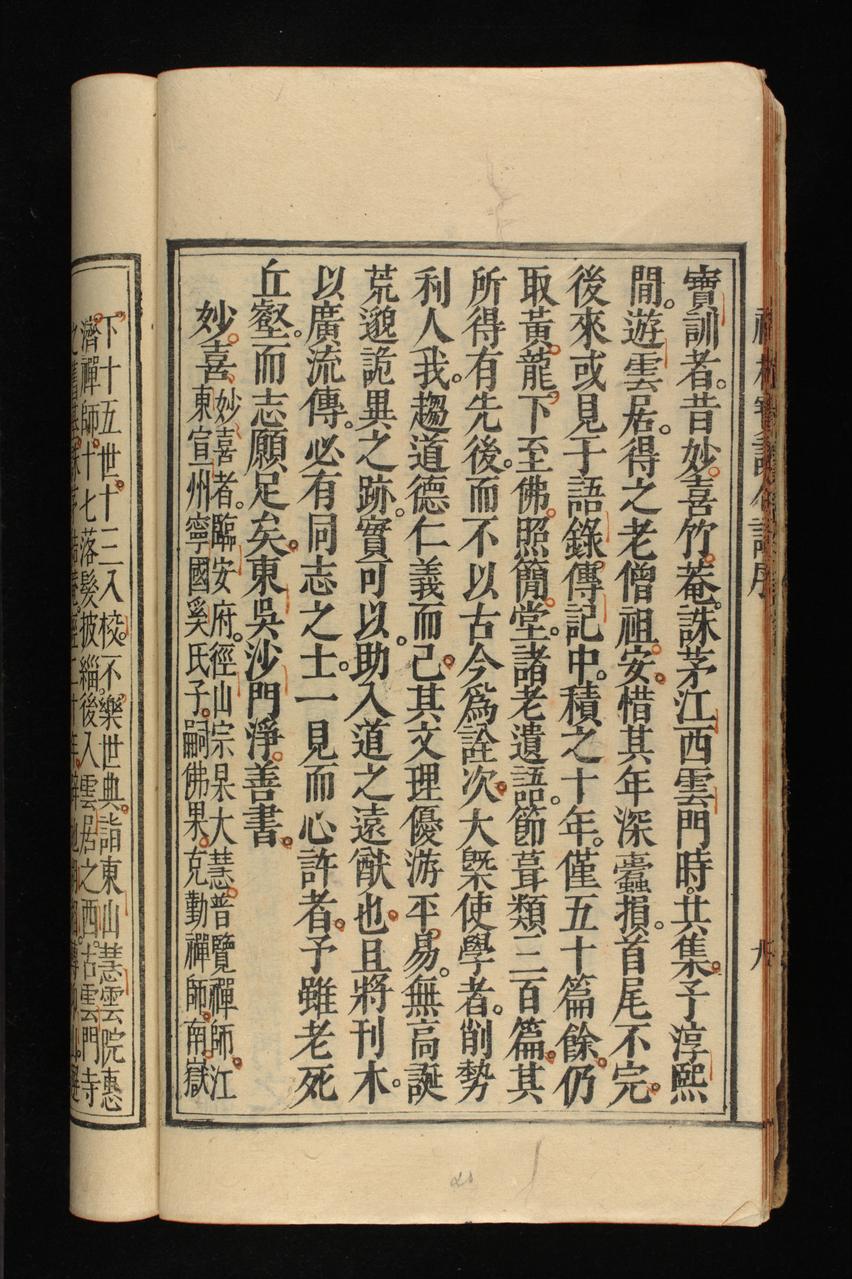 寶訓者。昔妙喜竹菴。誅茅江西雲門時。共集。予淳熙
閒。遊雲居。得之老僧祖安。惜其年深蠹損。首尾不完。
後來或見于語錄。傳記中。積之十年。僅五十篇餘。仍
取黃龍。下至佛照簡堂。諸老遺語。節葺類三百篇。其
所得有先後。而不以古今爲詮次。大槩使學者。削勢
利人我。趨道德仁義而已。其文理優游平易。無高誕
荒邈詭異之跡。實可以。助入道之遠猷也。且將刊木。
以廣流傳。必有同志之士。一見而心許者。予雖老死
丘壑。而志願足矣。東吳沙門淨善書。
妙喜 妙喜者。臨安府。徑山宗杲大慧普覽禪師。江
東宣州寧國奚氏子。嗣佛果。克勤禪師。南嶽
下十五世。十三入校。不樂世典。詣東山慧雲院惠
濟禪師。十七落髮披緇。後入雲居之西。古雲門寺